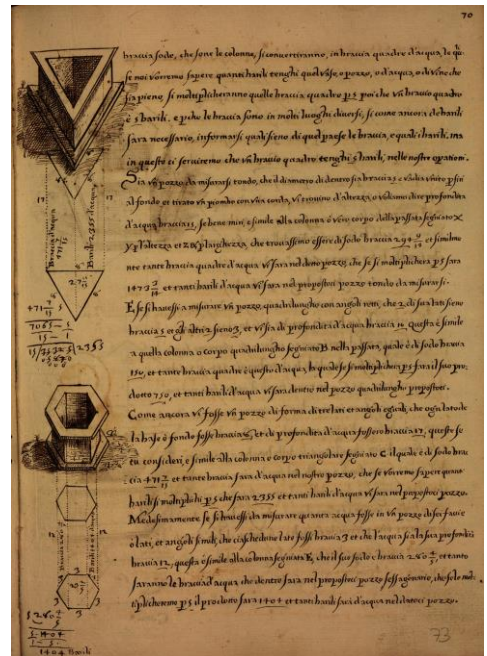 70
braccia sode, che sono le colonne, si convertiranno, in braccia quadre d'acqua, le qua
se noi vorremo sapere quanti barili tenghi quel vaso, o pozzo, o d'acqua, o di vino che
sia pieno, si moltiplicheranno quelle braccia quadre p 5 poi che vn braccio quadro
è 5 barili, e perche le braccia sono in molti luoghi diversi, si come ancora de barili
sara necessario, informarsi quali sieno di quel paese le braccia, e quali i barili, ma
in queste ci serviremo che vn braccio quadro tenghi 5 barili, nelle nostre operationi.
Sia vn pozzo da misurarsi tondo, che il diametro di dentro sia braccia 5 e vadia vnito p fin
al fondo et tirato vn piombo con vna corda, vi sieno d'altezza o vogliamo dire profondita
d'acqua braccia 15, se bene mio, e simile alla colonna o vero corpo della passata segnato X
Y p l'altezza et Z & p larghezza, che trovassimo essere di sode braccia 294 9/14 et similme
nte tante braccia quadre d'acqua vi sara nel detto pozzo, che se si moltiplichera p 5 fara
1473 3/14 et tanti barili d'acqua vi sara nel propostoci pozzo tondo da misurarsi.
E se si havessi a misurare vn pozzo, quadrilungho con angoli retti, che 2 di sua lati sieno
braccia 5 et gli altri 2 sieno 3, et vi sia di profondita d'acqua braccia 10, questa è simile
a quella colonna o corpo quadrilungho segnato B nella passata, quale è di sode braccia
150, et tante braccia quadre è questo d'acqua, la quale se si moltiplichera p 5 fara il suo pro,
dotto 750, et tanti barili d'acqua vi sara dentro nel pozzo quadrilungho propostoci.
Come ancora vi fosse vn pozzo di forma di tre lati et angoli eguali, che ogni lato de
la base o fondo fosse braccia 8, et di profondita d'acqua fossero braccia 17, questa se
tu consideri, e simile alla colonna e corpo triangolare segnato C, il quale è di sode bra,
ccia 471 2/15 et tante braccia sara d'acqua nel nostro pozzo, che se vorremo sapere quant
barili si moltiplichi p 5 che fara 2355 et tanti barili d'acqua vi sara nel propostoci pozzo.
Medesimamente se si havessi da misurare quanta acqua fosse in vn pozzo di sei facie
o lati, et angoli simili, che ciascheduno lato fossi braccia 3 et che l'acqua si ala sua profondità
braccia 12, questa è simile alla colonna segnata E, che il suo sodo e braccia 280 4/5, et tante
saranno le braccia d'acqua che dentro sara nel propostoci pozzo sessagonario, che se lo mol
tiplicheremo p 5 il prodotto sara 1404 et tanti barili sara d'acqua nel datoci pozzo.
17
17
Braccia d'acqua
Barili 2355 d'acqua
15/
2353
12
12
3
3
3
5 280 4/5
5 1404
1404 Barili
73